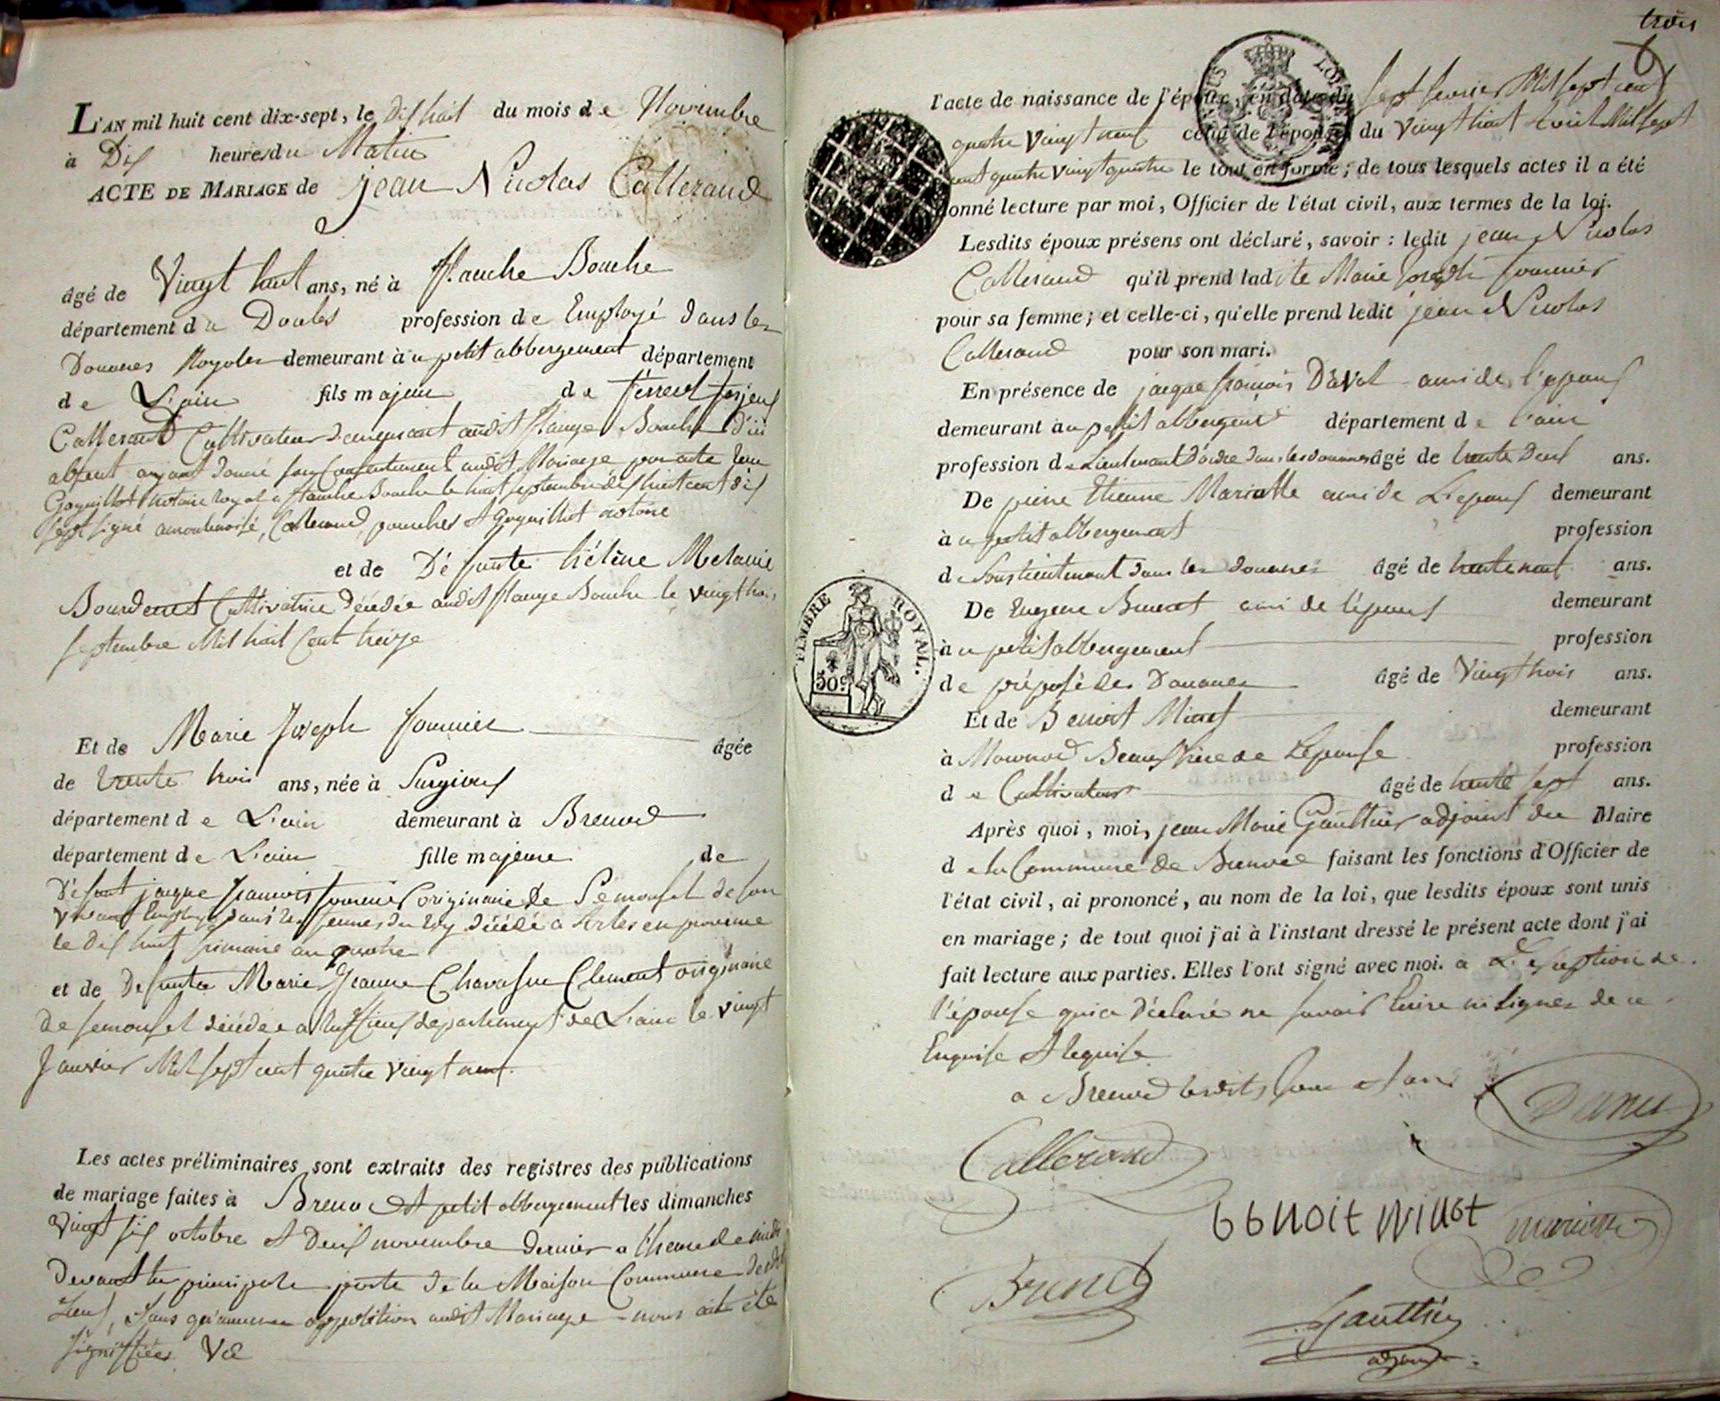 L'AN mil huit cent dix-sept, le Dishuit du mois de Novembre
à Dis heures du Matin
ACTE DE MARIAGE de jean Nicolas Calleraud
âgé de Vingt huit ans, né à flanche Bouche
département du Doubs profession de Employé dans les
Douanes Royales demeurant à u petit abbergement département
de L'ain fils majeur de ferreol
Calleraud Cultivateur demeurant audit flange Bouche
absent ayant donné son Consentement audit Mariage par acte
Goguillot notaire royal a flanche Bouche le huit septembre dishuit cent dis
sept signé Callerand, Goguillot notaire
et de Défunte hélène Melanie
Cultivatrice Décédée audit flange Bouche le vingt trois
septembre Mil huit Cent treize
Et de Marie Joseph fournier âgée
de trente trois ans, née à
département de L'ain demeurant à Brenod
département de L'ain fille majeure de
Défunt jacque francois fournier originaire De Semousel de son
vivant Employé dans les fermes du roy décédé a Arles en provence
le dis huit frimaire an quatre
et de Defunte Marie Jeanne Clement originaire
de semousel décédée a département de L'ain le vingt
Janvier Mil sept cent quatre vingt neuf.
Les actes préliminaires sont extraits des registres des publications
de mariage faites à Breno et petit abbergement les dimanches
vingt six octobre et Deux novembre dernier a l'heure de midi
devant la principale porte de la Maison Commune
lieux, sans qu'aucune opposition audit Mariage nous ait été
signifiées Vu
trois
6
l'acte de naissance de l'époux, en date du sept fevrier Mil sept cent
quatre vingt neuf celui de l'épouse du vingt huit avril Mil sept
cent quatre vingt quatre le tout en forme; de tous lesquels actes il a été
donné lecture par moi, Officier de l'état civil, aux termes de la loi.
Lesdits époux présens ont déclaré, savoir: ledit jean Nicolas
Calleraud qu'il prend ladite Marie Joseph fournier
pour sa femme; et celle-ci, qu'elle prend ledit jean Nicolas
Calleraud pour son mari.
En présence de jacque francois Davat ami de l'epoux
demeurant au petit abbergement département de l'ain
profession de Lieutenant d'ordre dans les douanes âgé de trente deux ans.
De pierre Etienne Mariotte ami de L'epoux demeurant
à u petit abbergement profession
de Souslieutenant dans les douanes âgé de trente neuf ans.
De Eugene Brunet ami de l'époux demeurant
à u petit abbergement profession
de préposé des Douanes âgé de Vingt trois ans.
Et de Benoit demeurant
à Beaufrère de L'epouse profession
de Cultivateur âgé de trente sept ans.
Après quoi, moi, jean Marie Gaulthier adjoint du Maire
de la Commune de Brenod faisant les fonctions d'Officier de
l'état civil, ai prononcé, au nom de la loi, que lesdits époux sont unis
en mariage; de tout quoi j'ai à l'instant dressé le présent acte dont j'ai
fait lecture aux parties. Elles l'ont signé avec moi. a L'exception de
l'épouse qui a Déclaré ne savoir lire ni signer de ce
Enquise et requise
a Brenod lesdits jour et an
TIMBRE ROYAL.
50c
Callerand
Mariotte
Brunet
Gaulthier
adjoint